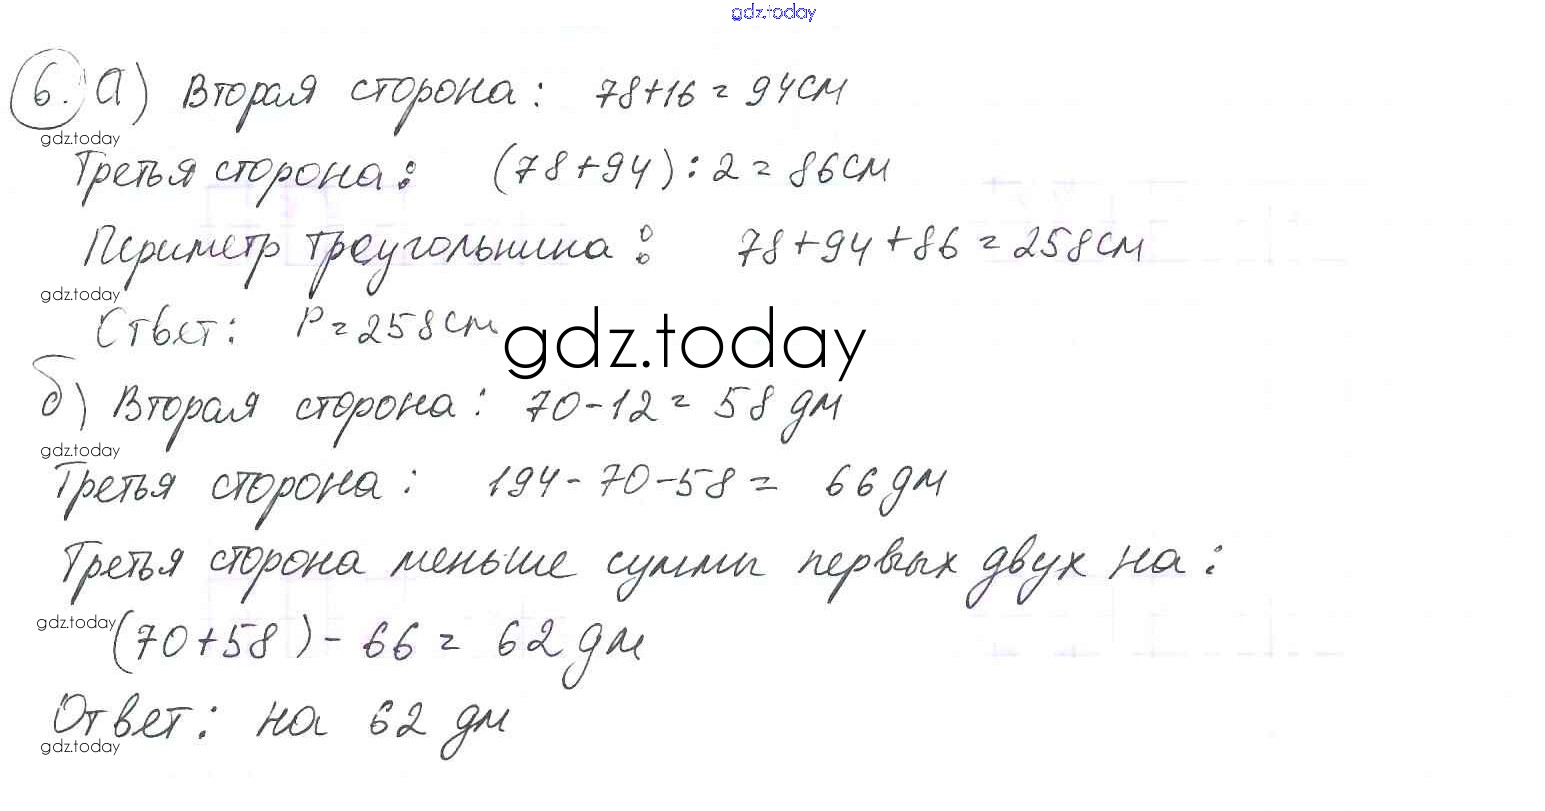 gdz.today
6. а) Вторая сторона: 78+16=94см
gdz.today
Третья сторона: (78+94):2=86см
Периметр треугольника: 78+94+86=258см
gdz.today
Ответ: P=258см
gdz.today
б) Вторая сторона: 70-12=58 дм
gdz.today
Третья сторона: 194-70-58= 66 дм
Третья сторона меньше суммы первых двух на:
gdz.today
(70+58)-66= 62 дм
Ответ: на 62 дм
gdz.today